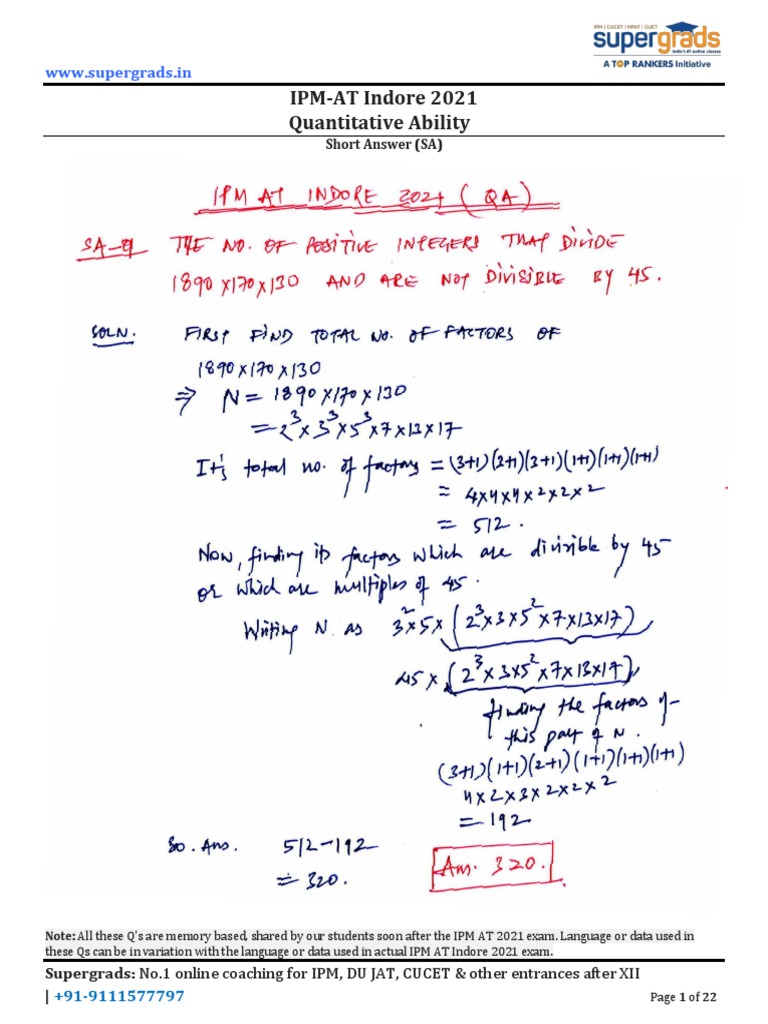 IPM | CUCET | NPAT | CUET
supergrads
India's #1 online classes
A TOP RANKERS Initiative
www.supergrads.in
IPM-AT Indore 2021
Quantitative Ability
Short Answer (SA)
IPM AT INDORE 2021 (QA)
SA-01 THE NO. OF POSITIVE INTEGERS THAT DIVIDE
1890×170×130 AND ARE NOT DIVISIBLE BY 45.
SOLN. FIRST FIND TOTAL NO. OF FACTORS OF
1890×170×130
⇒ N = 1890×170×130
= 2³×3³×5³×7×13×17
It's total no. of factors = (3+1)(3+1)(3+1)(1+1)(1+1)(1+1)
= 4×4×4×2×2×2
= 512.
Now, finding its factors which are divisible by 45
or which are multiples of 45.
Writing N as 3²×5×(2³×3×5²×7×13×17)
45×(2³×3×5²×7×13×17)
finding the factors of
this part of N.
(3+1)(1+1)(2+1)(1+1)(1+1)(1+1)
4×2×3×2×2×2
= 192
So. Ans. 512-192
= 320.
Ans. 320.
Note: All these Q's are memory based, shared by our students soon after the IPM AT 2021 exam. Language or data used in
these Qs can be in variation with the language or data used in actual IPM AT Indore 2021 exam.
Supergrads: No.1 online coaching for IPM, DU JAT, CUCET & other entrances after XII
| +91-9111577797
Page 1 of 22